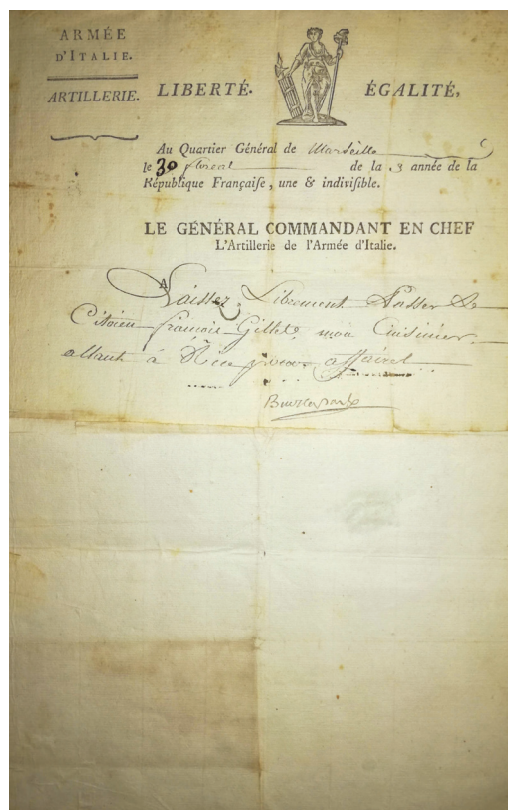 ARMÉE
D'ITALIE.
ARTILLERIE.
LIBERTÉ. ÉGALITÉ,
Au Quartier Général de Marseille
le 30 floreal de la 3 année de la
République Françaiſe, une & indiviſible.
LE GÉNÉRAL COMMANDANT EN CHEF
L'Artillerie de l'Armée d'Italie.
A
Laissez Librement Passer Le
Citoien françois Gillet, mon Cuisinier
allant à Nice pour affaires